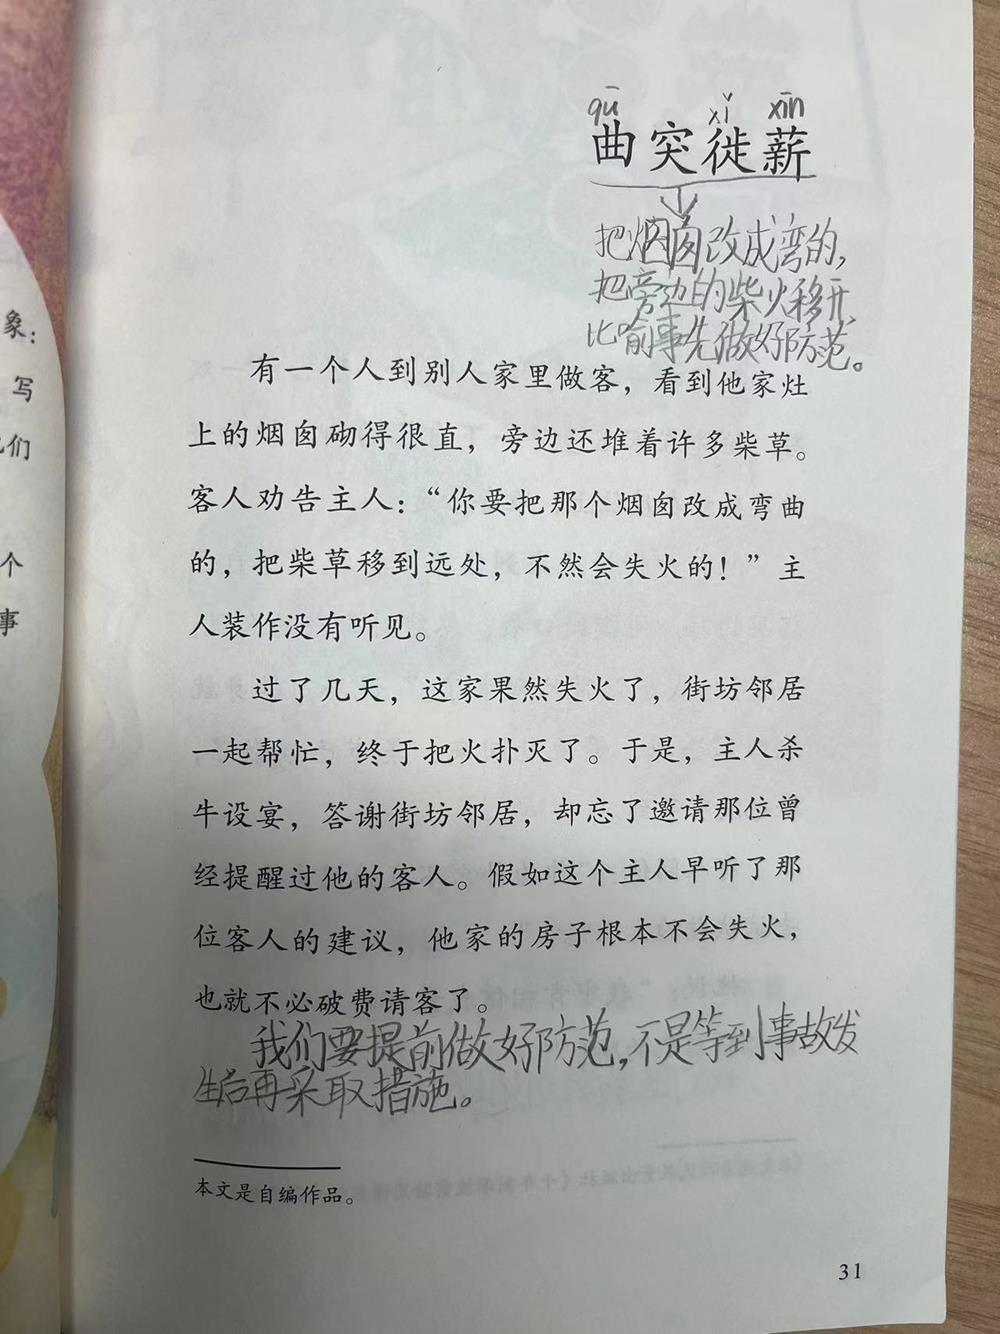 qū xǐ xīn
曲突徙薪
把烟囱改成弯的，
把旁边的柴火移开，
比喻事先做好防范。
有一个人到别人家里做客，看到他家灶
上的烟囱砌得很直，旁边还堆着许多柴草。
客人劝告主人：“你要把那个烟囱改成弯曲
的，把柴草移到远处，不然会失火的！”主
人装作没有听见。
过了几天，这家果然失火了，街坊邻居
一起帮忙，终于把火扑灭了。于是，主人杀
牛设宴，答谢街坊邻居，却忘了邀请那位曾
经提醒过他的客人。假如这个主人早听了那
位客人的建议，他家的房子根本不会失火，
也就不必破费请客了。
我们要提前做好防范，不是等到事故发
生后再采取措施。
本文是自编作品。
31
象：
写
们
个
事